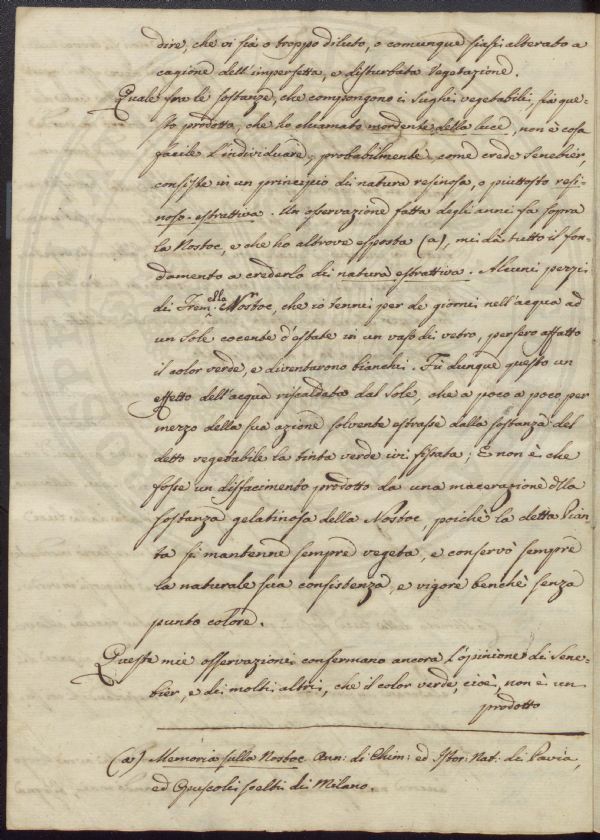 dire, che vi sia o troppo diluto, o comunque siasi alterato a
cagione dell'imperfetta, e disturbata Vegetazione.
Quale fra le sostanze, che compongono i sughi vegetabili, sia que-
sto prodotto, che ho chiamato mordente della luce, non è cosa
facile l'individuare, probabilmente, come crede Senebier,
consiste in un principio di natura resinosa, o piuttosto resi-
noso-estrattiva. Un osservazione fatta degli anni fa sopra
la Nostoc, e che ho altrove esposta (a), mi dà tutto il fon-
damento a crederlo di natura estrattiva. Alcuni pezzi
di Tremella Nostoc, che io tenni per de giorni nell'acqua ad
un Sole cocente d'estate in un vaso di vetro, persero affatto
il color verde, e diventarono bianchi. Fù dunque questo un
effetto dell'acqua riscaldata dal Sole, che a poco a poco per
mezzo della sua azione solvente estrasse dalla sostanza del
detto vegetabile la tinta verde ivi fissata; E non è che
fosse un disfacimento prodotto da una macerazione della
sostanza gelatinosa della Nostoc, poichè la detta Pian
ta si mantenne sempre vegeta, e conservò sempre
la naturale sua consistenza, e vigore benchè senza
punto colore.
Queste mie osservazioni confermano ancora l'opinione di Sene-
bier, e di molti altri, che il color verde, cioè, non è un
prodotto
(a) Memoria sulla Nostoc Ann: di Chim: ed Istor: Nat: di Pavia,
ed Opuscoli scelti di Milano.